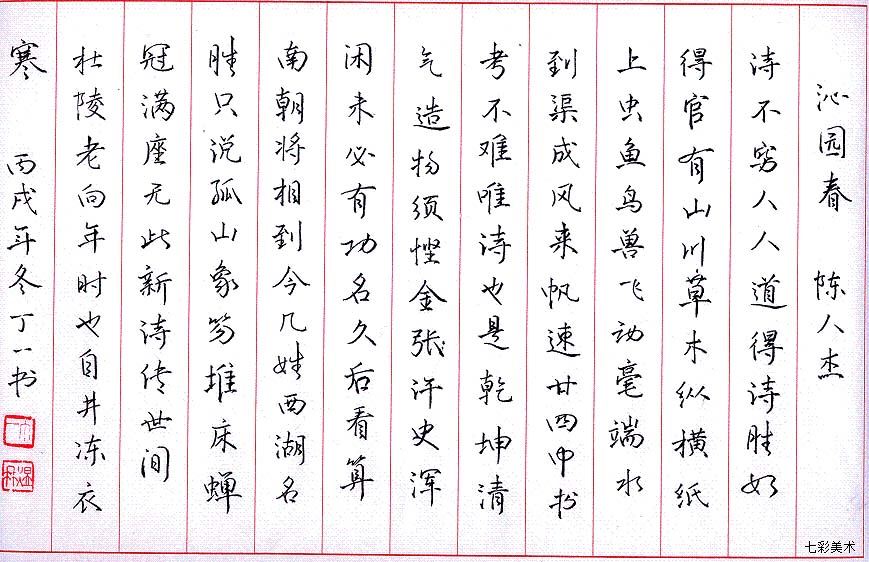 沁园春 陈人杰
诗不穷人人道得诗胜如
得官有山川草木纵横纸
上虫鱼鸟兽飞动毫端水
到渠成风来帆速廿四中书
考不难唯诗也是乾坤清
气造物须悭金张许史浑
闲未必有功名久后看算
南朝将相到今几姓西湖名
胜只说孤山象笏堆床蝉
冠满座无此新诗传世间
杜陵老向年时也自井冻衣
寒 丙戌年冬丁一书
七彩美术